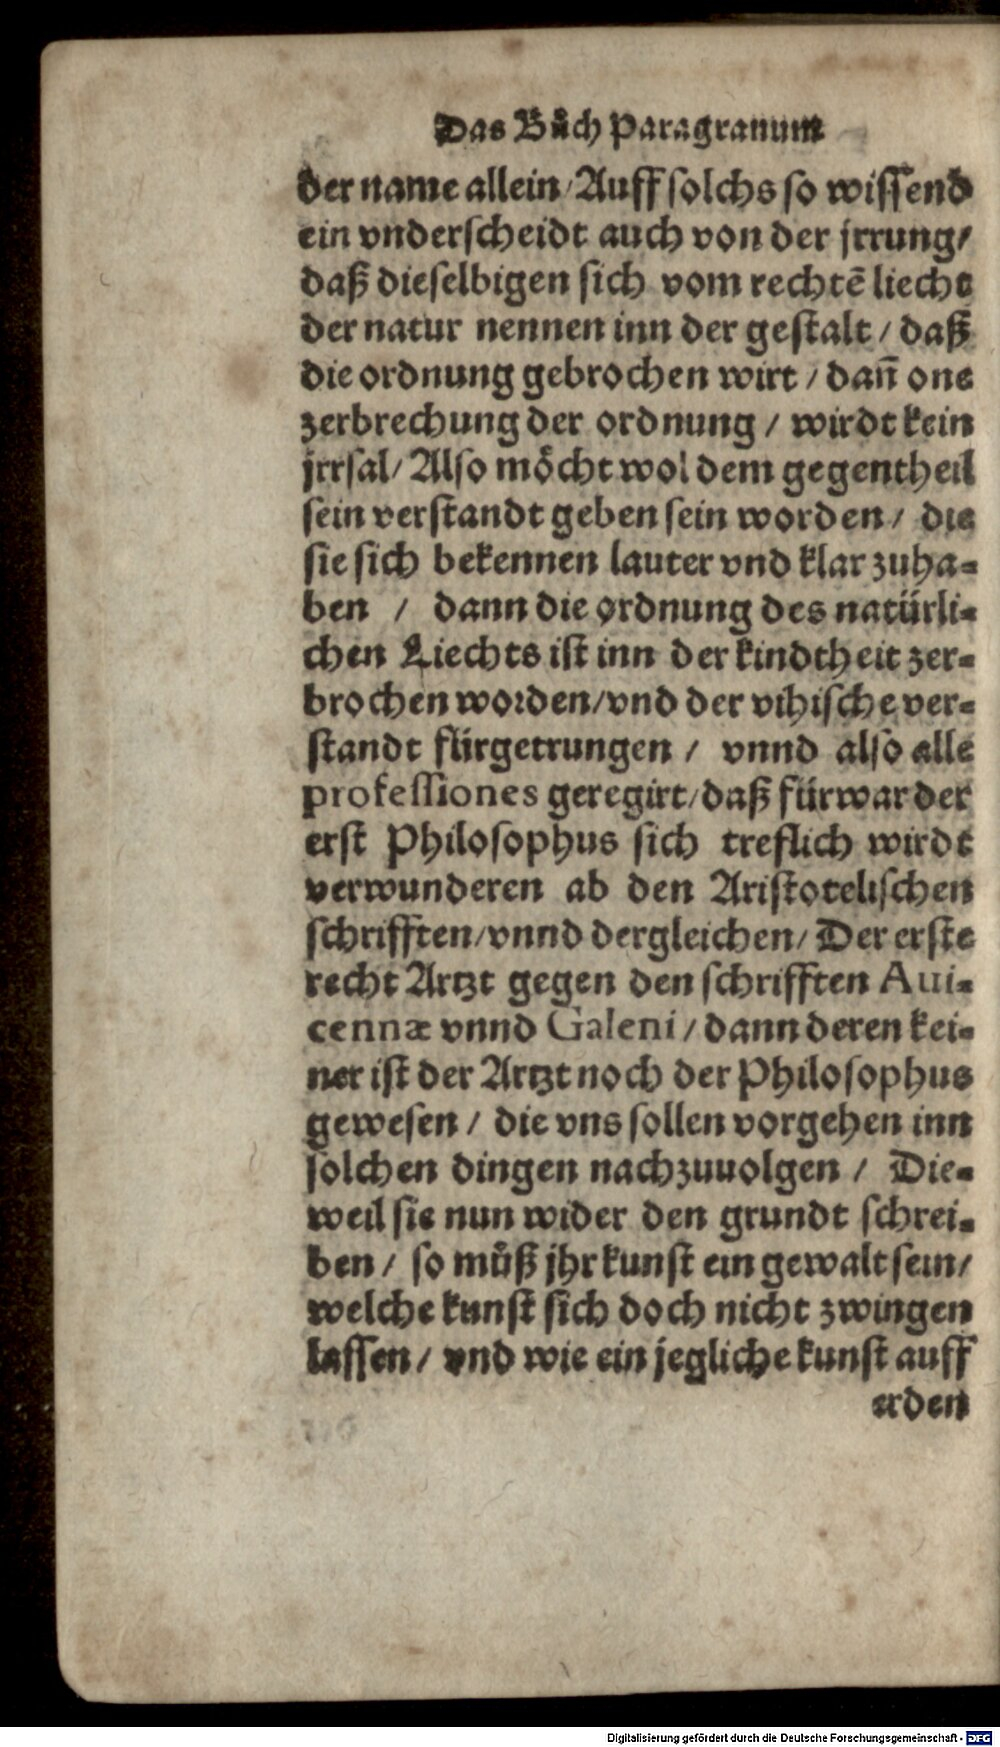 Das Bůch Paragranum
der name allein/Auff solchs so wissend
ein vnderscheidt auch von der jrrung/
daß dieselbigen sich vom rechtē liecht
der natur nennen inn der gestalt / daß
die ordnung gebrochen wirt / dañ one
zerbrechung der ordnung / wirdt kein
jrrsal/ Also möcht wol dem gegentheil
sein verstandt geben sein worden / die
sie sich bekennen lauter vnd klar zuha-
ben / dann die ordnung des natürli-
chen Liechts ist inn der kindtheit zer-
brochen worden/vnd der vihische ver-
standt fürgetrungen / vnnd also alle
professiones geregirt/daß fürwar der
erst Philosophus sich treflich wirdt
verwunderen ab den Aristotelischen
schrifften/vnnd dergleichen/ Der erste
recht Artzt gegen den schrifften Aui-
cennæ vnnd Galeni / dann deren kei-
ner ist der Artzt noch der Philosophus
gewesen / die vns sollen vorgehen inn
solchen dingen nachzuuolgen / Die-
weil sie nun wider den grundt schrei-
ben / so můß jhr kunst ein gewalt sein/
welche kunst sich doch nicht zwingen
lassen / vnd wie ein jegliche kunst auff
erden
Digitalisierung gefördert durch die Deutsche Forschungsgemeinschaft - DFG